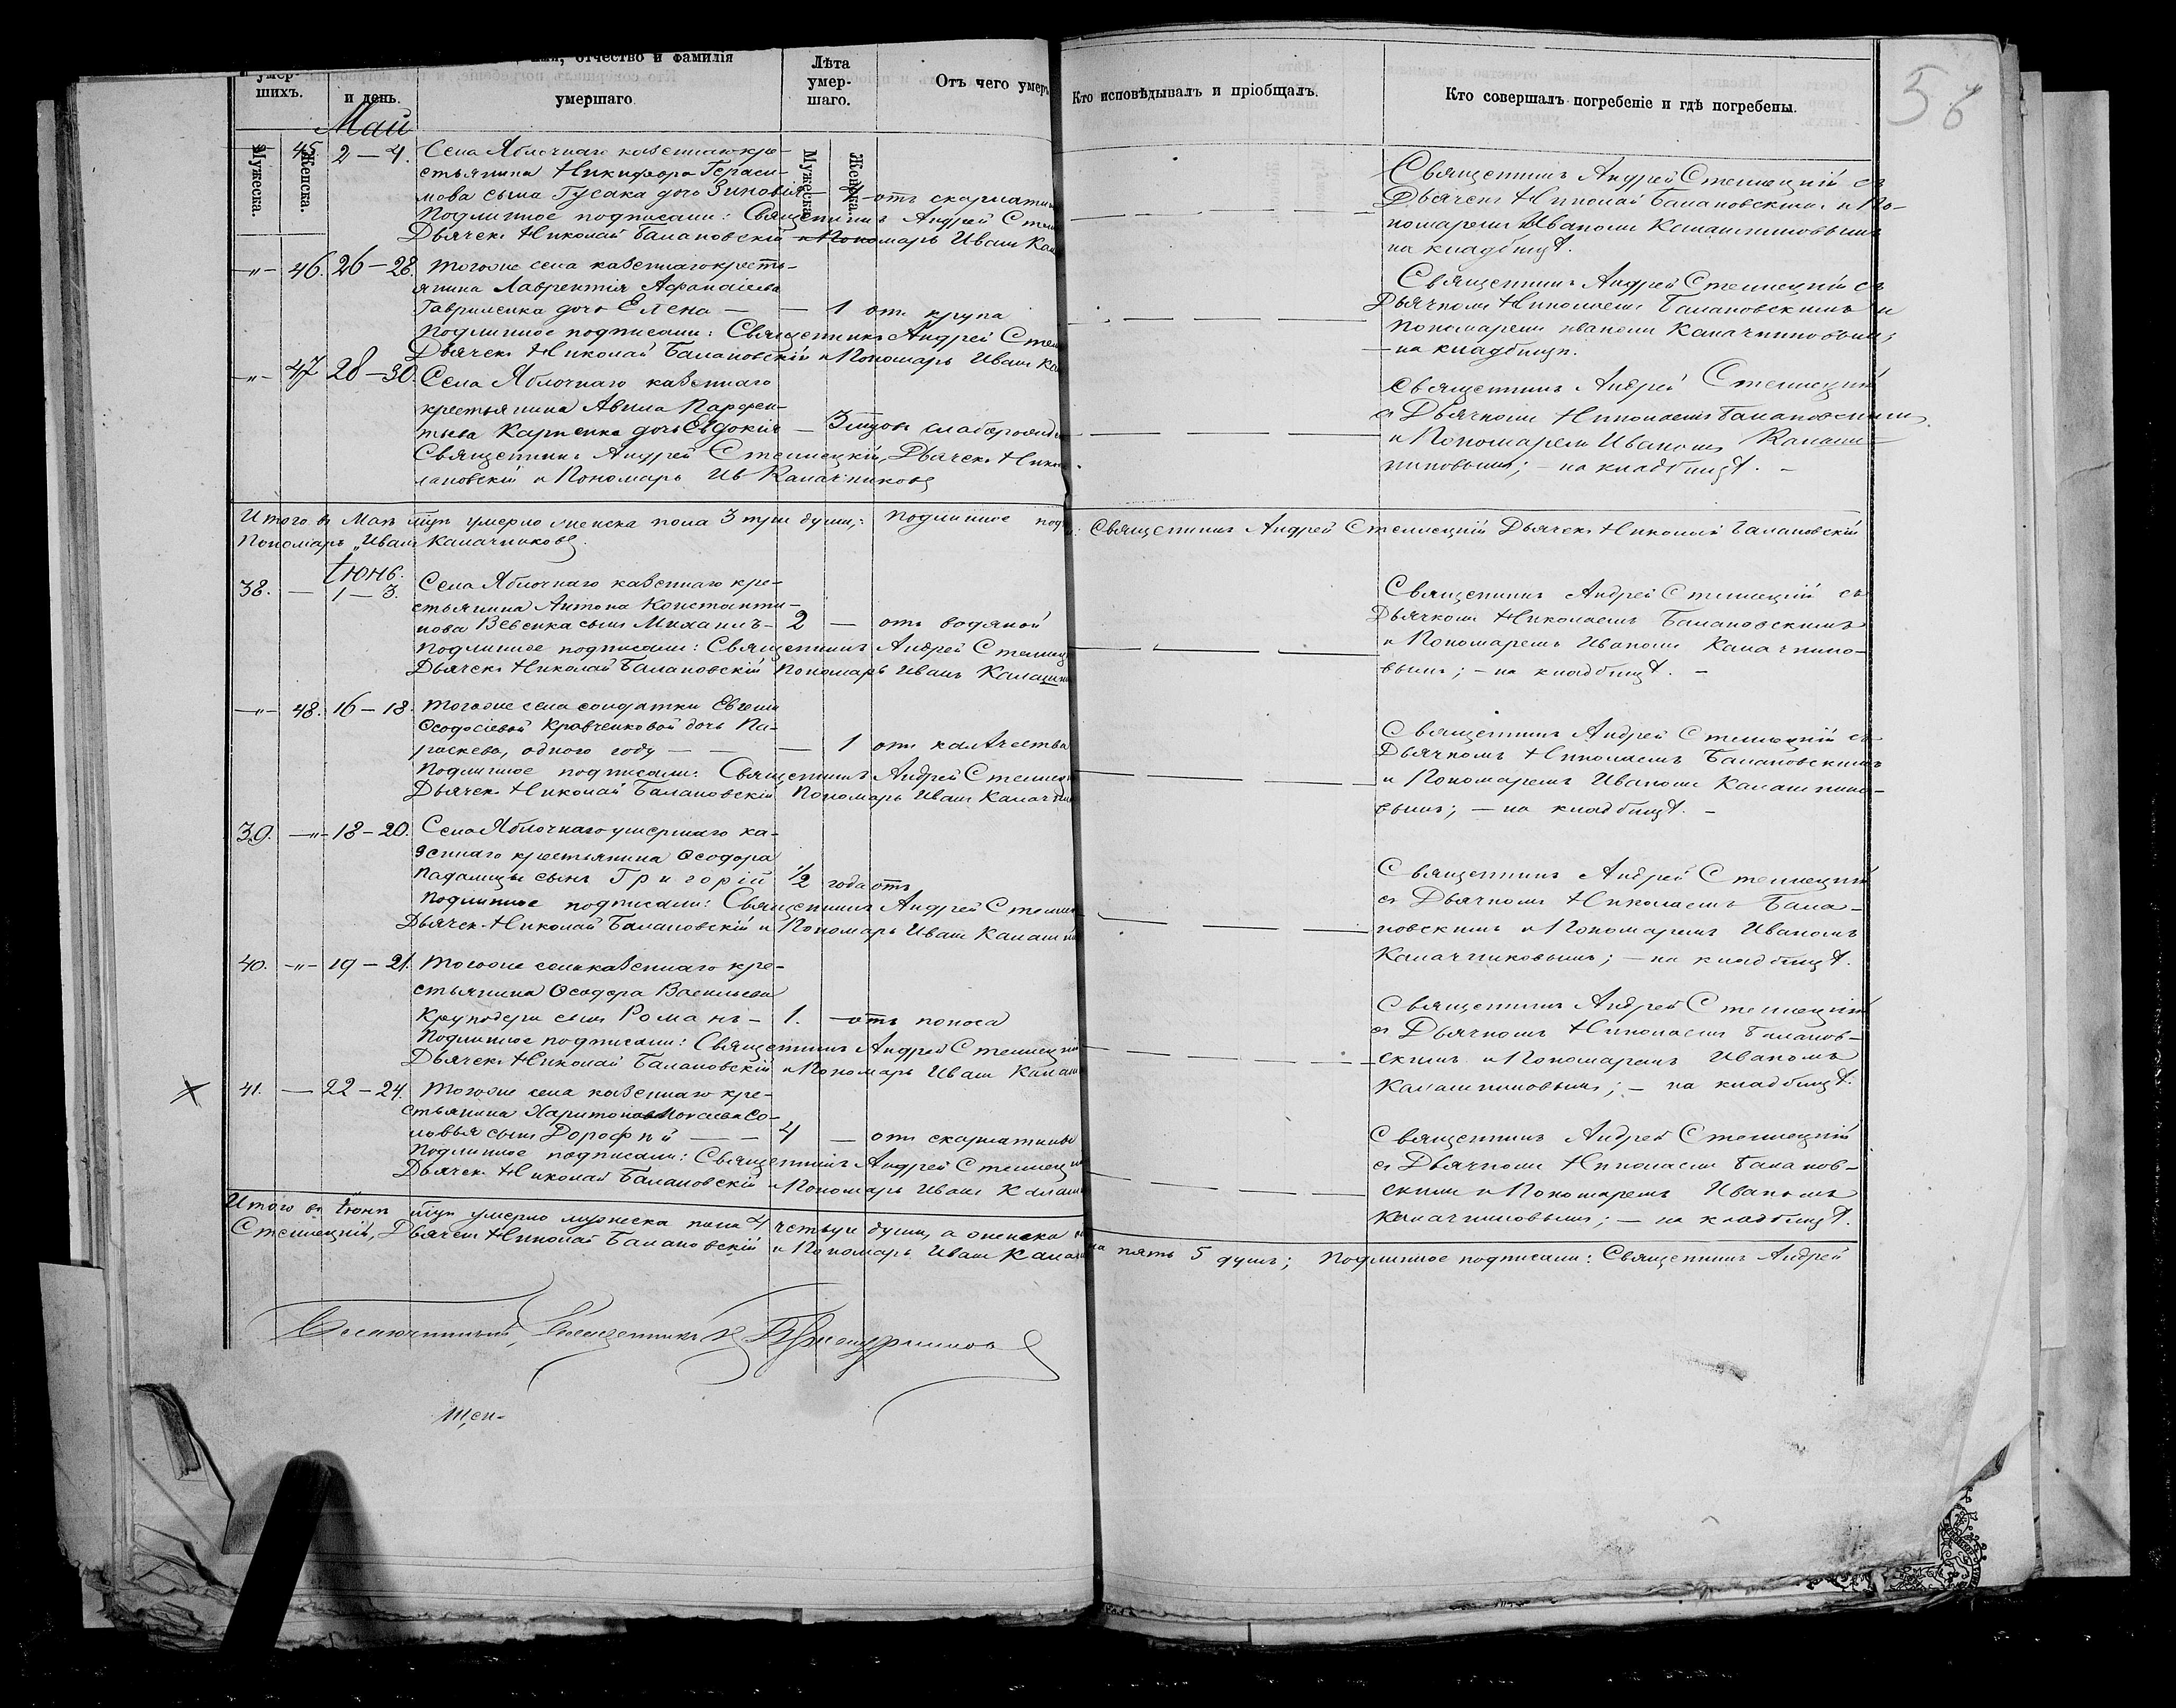 умер-
шихъ.
и день.
имя, отчество и фамилія
умершаго
Лѣта
умер-
шаго.
Отъ чего умеръ
Кто исповѣдывалъ и пріобщалъ.
Кто совершалъ погребеніе и гдѣ погребены.
Мужеска.
Женска.
Мужеска.
Женска.
Май
45 2 — 4. Села Яблочнаго казеннаго кре-
стьянина Никифора Гераси-
мова сына Гусака дочь Зиновія — отъ скарлатин
Подлинное подписали: Священникъ Андрей Стел
Дьячекъ Николай Балановскій и Пономарь Иванъ Кал
Священникъ Андрей Стеллецкій съ
Дьячкомъ Николай Балановскимъ и По-
номаремъ Иваномъ Калашниковымъ
на кладбищѣ.
—"— 46. 26 — 28. того же села казеннаго кресть-
янина Лаврентія Афанасіева
Гавриленка дочь Елена — — 1 отъ крупа
Подлинное подписали: Священникъ Андрей Стел
Дьячекъ Николай Балановскій и Пономарь Иванъ Кал
Священникъ Андрей Стеллецкій съ
Дьячкомъ Николаемъ Балановскимъ и
Пономаремъ Иваномъ Калачниковымъ;
— на кладбищѣ.
—"— 47 28 — 30. Села Яблочнаго казеннаго
крестьянина Авила Парфен-
тьева Карпенка дочь Евдокия — 3 мцовъ слаборожд
Священникъ Андрей Стеллецкій, Дьячекъ Никол
лановскій и Пономарь Ив Калачниковъ
Священникъ Андрей Стеллецкій
съ Дьячкомъ Николаемъ Балановскимъ
и Пономаремъ Иваномъ Калаш-
никовымъ; — на кладбищѣ. —
Итого въ Маѣ мцѣ умерло женска пола 3 три души; Подлинное под
Священникъ Андрей Стеллецкій Дьячекъ Николай Балановскій
Пономарь Иванъ Калачниковъ.
Іюнь.
38. — 1 — 3. Села Яблочнаго казеннаго кре-
стьянина Антона Константи-
нова Вевенка сынъ Михаилъ — 2 — отъ водяной
Подлинное подписали: Священникъ Андрей Стеллец
Дьячекъ Николай Балановскій Пономарь Иванъ Калашни
Священникъ Андрей Стеллецкій съ
Дьячкомъ Николаемъ Балановскимъ
и Пономаремъ Иваномъ Калачнико-
вымъ; — на кладбищѣ. —
—"— 48. 16 — 18. того же села солдатки Евгеніи
Ѳеодосіевой Кравченковой дочь Па-
раскева, одного году — — — 1 отъ
Подлинное подписали: Священникъ Андрей Стеллец
Дьячекъ Николай Балановскій Пономарь Иванъ Калачни
Священникъ Андрей Стеллецкій съ
Дьячкомъ Николаемъ Балановскимъ
и Пономаремъ Иваномъ Калашнико-
вымъ; — на кладбищѣ. —
39. —"— 18 — 20. Села Яблочнаго умершаго ка-
зеннаго крестьянина Ѳеодора
Падалицы сынъ Григорій 1/2 года отъ
Подлинное подписали: Священникъ Андрей Стеллец
Дьячекъ Николай Балановскій и Пономарь Иванъ Калашни
Священникъ Андрей Стеллецкій
съ Дьячкомъ Николаемъ Бала-
новскимъ и Пономаремъ Иваномъ
Калачниковымъ; — на кладбищѣ.
40. —"— 19 — 21. того же села казеннаго кре-
стьянина Ѳеодора Васильева
Круподери сынъ Романъ — 1. — отъ поноса
Подлинное подписали: Священникъ Андрей Стеллецкій
Дьячекъ Николай Балановскій и Пономарь Иванъ Калаш
Священникъ Андрей Стеллецкій
съ Дьячкомъ Николаемъ Баланов-
скимъ и Пономаремъ Иваномъ
Калашниковымъ; — на кладбищѣ.
41. — 22 — 24. того же села казеннаго кре-
стьянина Харитона Мокаева Со-
ловья сынъ Дорофѣй — — 4 — отъ скарлатины
Подлинное подписали: Священникъ Андрей Стеллецкій
Дьячекъ Николай Балановскій и Пономарь Иванъ Калаш
Священникъ Андрей Стеллецкій
съ Дьячкомъ Николаемъ Баланов-
скимъ и Пономаремъ Иваномъ
Калачниковымъ; — на кладбищѣ.
Итого въ Іюнѣ мцѣ умерло мужеска пола 4 четыре души, а женска
на пять 5 душъ; Подлинное подписали: Священникъ Андрей
Стеллецкій, Дьячекъ Николай Балановскій и Пономарь Иванъ Калаш
Благочинный, Священникъ